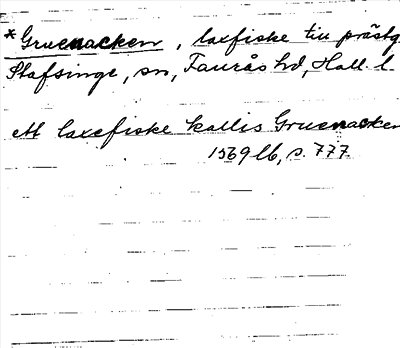 *Gruenacken, laxfiske till prästg.
Stafsinge, sn, Faurås hd, Hall. l.
ett laxefiske kallis Gruenacken
1569 lb, s. 777